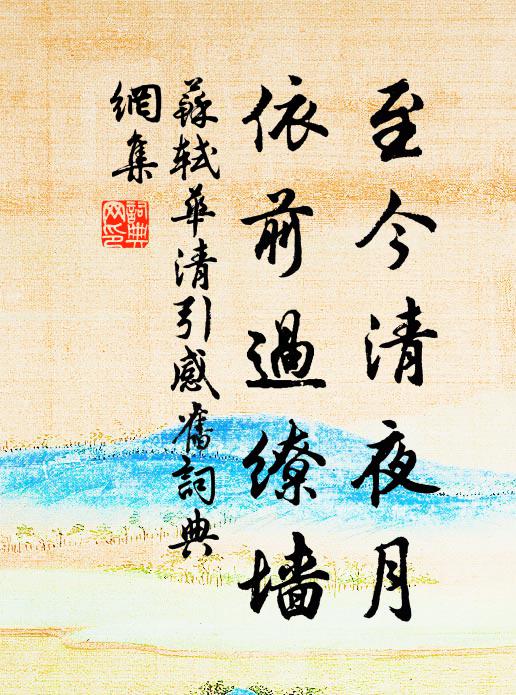 至今清夜月
依前過繚墻
蘇軾華清引感舊詞典
網集
詞典網印